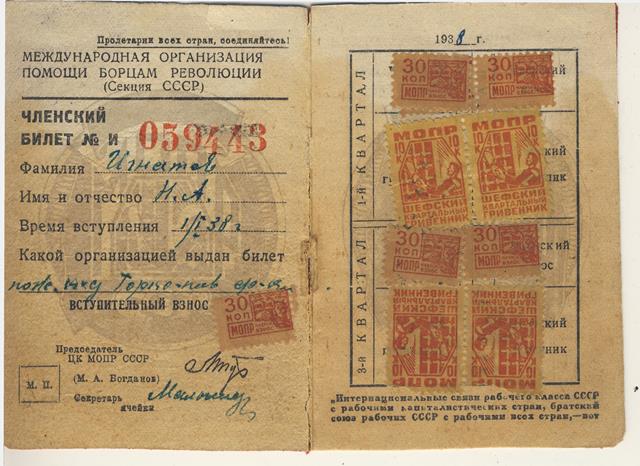 Пролетарии всех стран, соединяйтесь!
МЕЖДУНАРОДНАЯ ОРГАНИЗАЦИЯ
ПОМОЩИ БОРЦАМ РЕВОЛЮЦИИ
(Секция СССР)
ЧЛЕНСКИЙ
БИЛЕТ № И 059443
Фамилия Игнатов
Имя и отчество Н. А.
Время вступления 1/I 38 г
Какой организацией выдан билет
ВСТУПИТЕЛЬНЫЙ ВЗНОС
30 КОП МОПР
Председатель
ЦК МОПР СССР
(М. А. Богданов)
М. П.
Секретарь
ячейки
1938 г.
1-й КВАРТАЛ
30 КОП МОПР
30 КОП МОПР
МОПР 10 К ШЕФСКИЙ КВАРТАЛЬНЫЙ ГРИВЕННИК
МОПР 10 К ШЕФСКИЙ КВАРТАЛЬНЫЙ ГРИВЕННИК
3-й КВАРТАЛ
30 КОП МОПР
30 КОП МОПР
МОПР 10 К ШЕФСКИЙ КВАРТАЛЬНЫЙ ГРИВЕННИК
МОПР 10 К ШЕФСКИЙ КВАРТАЛЬНЫЙ ГРИВЕННИК
„Интернациональные связи рабочего класса СССР
с рабочими капиталистических стран, братский
союз рабочих СССР с рабочими всех стран,—вот